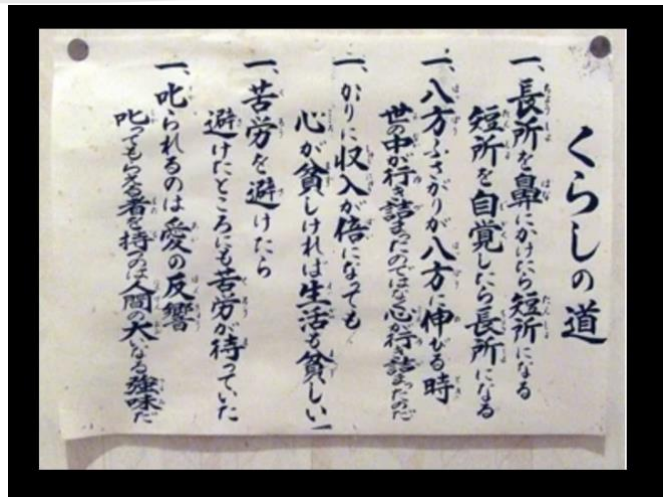 くらしの道
一、長所を鼻にかけたら短所になる
短所を自覚したら長所になる
一、八方ふさがりが八方に伸びる時
世の中が行き詰まったのではな心が行き詰まったのだ
一、かりに収入が倍になっても
心が貧しければ生活も貧しい
一、苦労を避けたら
避けたところにも苦労が待っていた
一、叱られるのは愛の反響
叱ってもらえる者を持つのは人間の大いなる強味だ